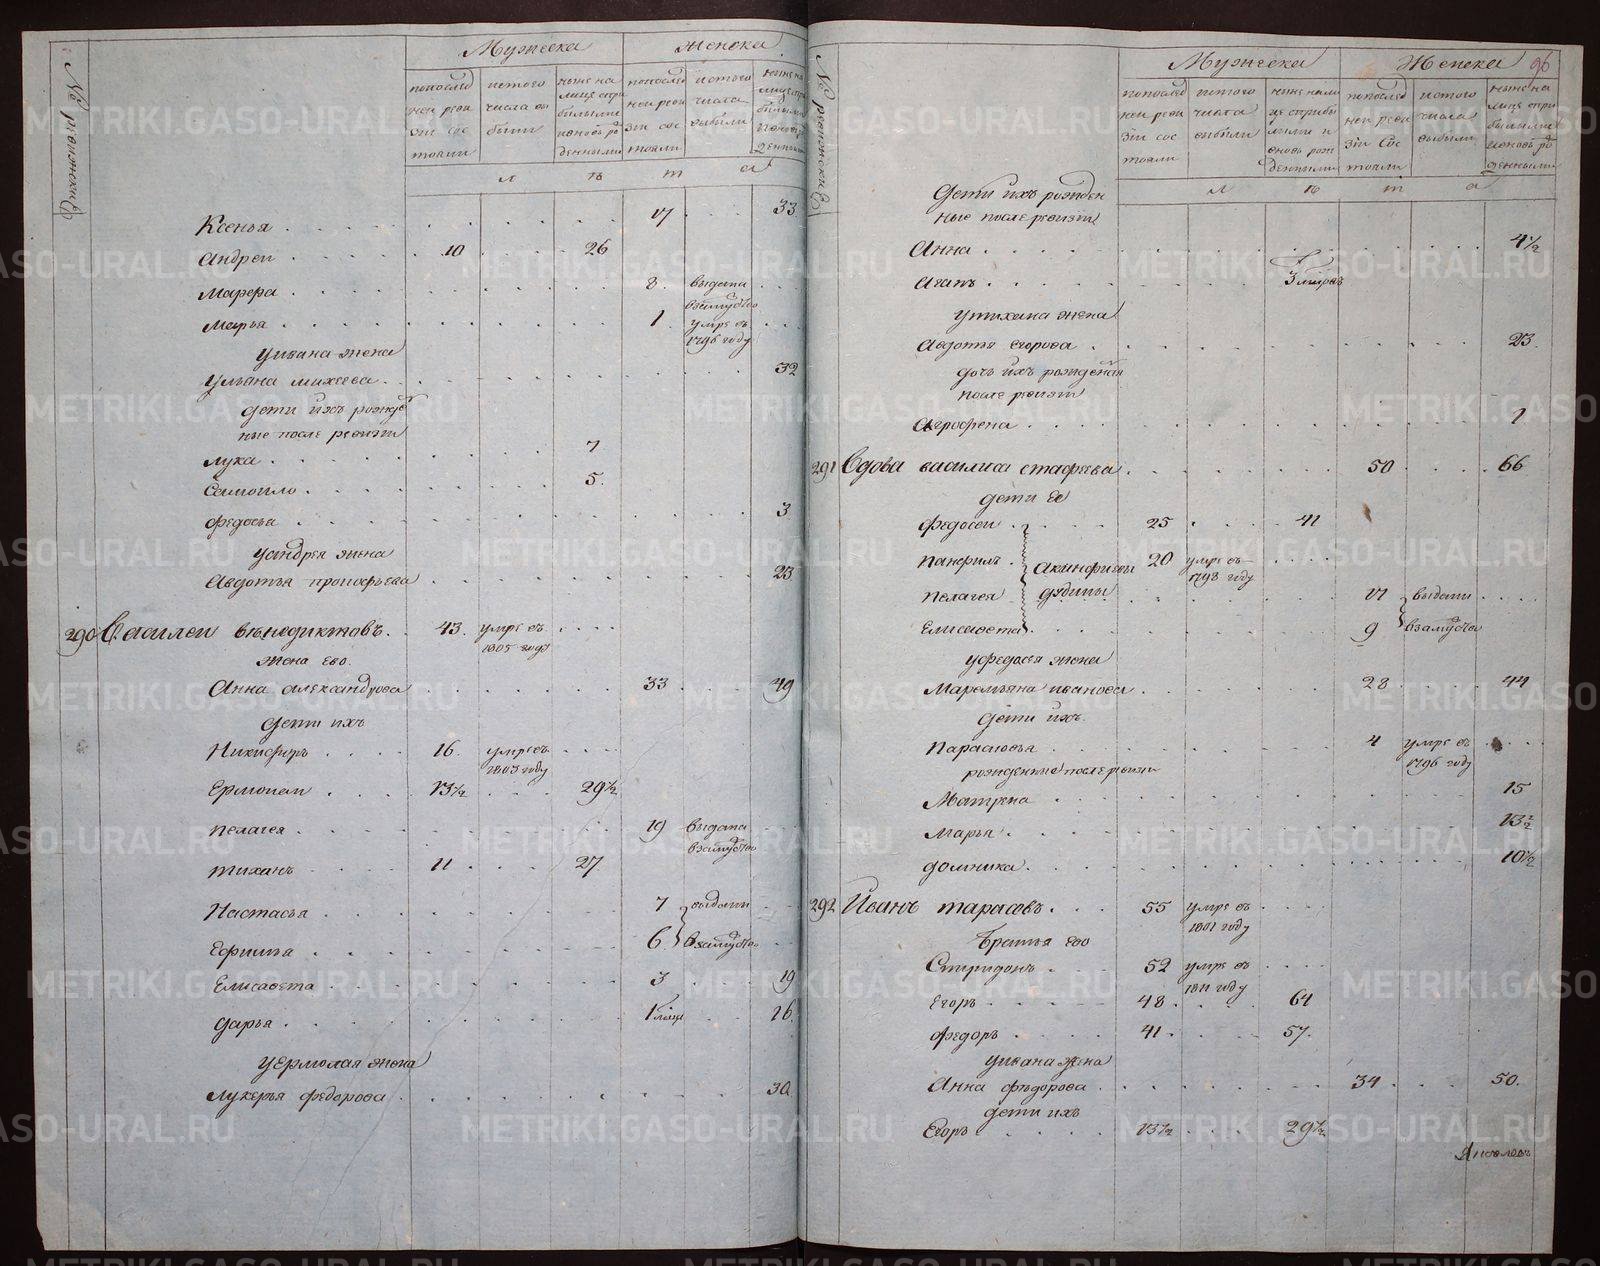 № ревижский
Мужеска
Женска
попослед
ней реви
зiи сос
тояли
истого
числа вы
были
ныне на
лице спри
былыми
иновь ро
денными
попослед
ней реви
зiи сос
тояли
истого
числа
выбыли
ныне на
лице спри
былыми
иновь ро
денными
л ѣ т а
Ксенья 17 33
Андреи 10 26
Марфа 8 выдана
взамужьво
Марья 1 умре въ
1796 году
уивана жена
Ульяна михеева 32
дети ихъ рожде
ные после ревизiи
лука 7
Самоило 5
Федосья 3
уандрея жена
Авдотья прокофьева 23
290 Василеи венедиктовъ 43 умре въ
1805 году
жена ево
Анна александрова 33 49
дети ихъ
Никифоръ 16 умре въ
1803 году
Ермолаи 13½ 29½
Пелагея 19 выдана
взамужьво
тиханъ 11 27
Настасья 7 выданы
Ефимья 6 взамужьво
Елисавета 3 19
дарья 1 мць 16
уЕрмолая жена
Лукерья федорова 30
№ ревижский
Мужеска
Женска 96
попослед
ней реви
зiи сос
тояли
истого
числа
выбыли
ныне нали
це сприбы
лыми и
вновь рож
денными
попослед
ней реви
зiи сос
тояли
истого
числа
выбыли
ныне на
лице спри
былыми
иновь ро
денными
л ѣ т а
Дети ихъ рожден
ные после ревизiи
Анна 4½
Агапъ 3 месяцъ
утихана жена
Авдотья егорова 23
дочь ихъ рожденая
после ревизiи
Агрофена 1
291 Вдова василиса стафеева 50 66
дети ее
Федосеи 25 41
Панфилъ Акинфиевы 20 умре въ
1798 году
Пелагея дудины 17 выданы
Елисавета 9 взамужьво
уфедосея жена
Маремьяна иванова 28 44
дети ихъ
Парасковья 4 умре въ
1796 году
рожденные после ревизiи
Матрена 15
Марья 13½
домника 10½
292 Иванъ тарасовъ 55 умре въ
1801 году
братья ево
Спиридонъ 52 умре въ
1811 году
Егоръ 48 64
Федоръ 41 57
уивана жена
Анна федорова 34 50
дети ихъ
Егоръ 13½ 29½
METRIKI.GASO-URAL.RU